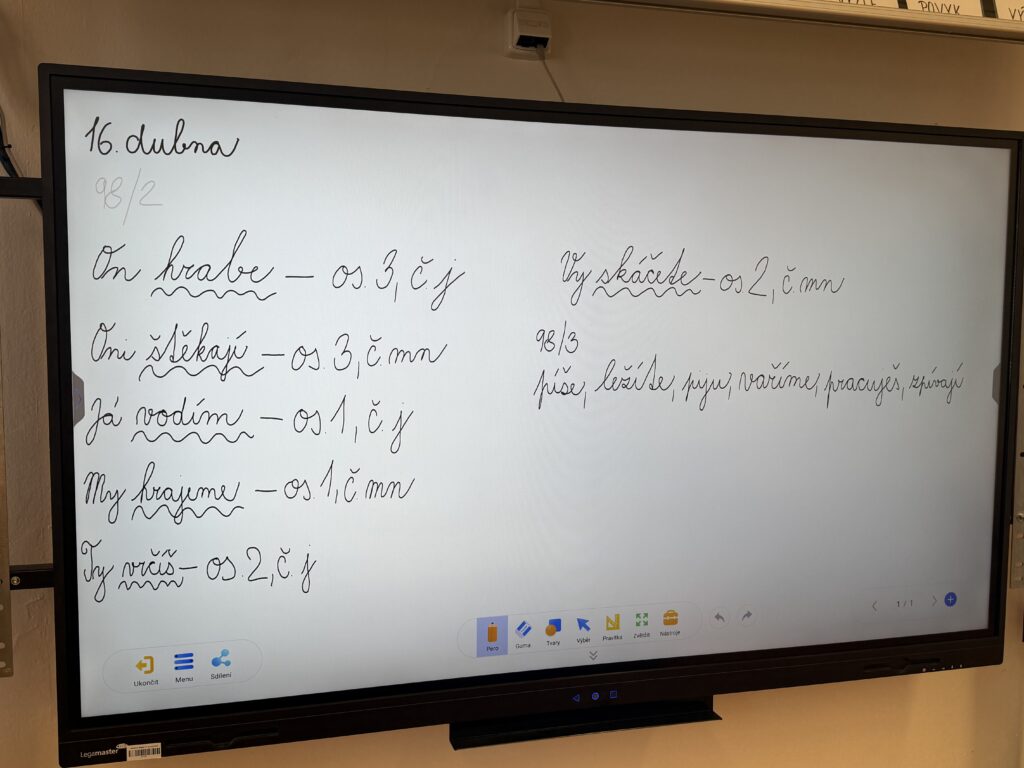 POVYK
16. dubna
98/2
On hrabe – os. 3, č. j
Oni štěkají – os. 3, č. mn
Já vodím – os. 1, č. j
My hrajeme – os. 1, č mn
Ty vrčíš – os. 2, č. j
Vy skáčete – os 2, č. mn
98/3
píše, ležíte, piju, vaříme, pracuješ, zpívají
1/1
Ukončit Menu Sdílení
Pero Guma Tvary Výběr Pravítka Zvětšit Nástroje
Legamaster